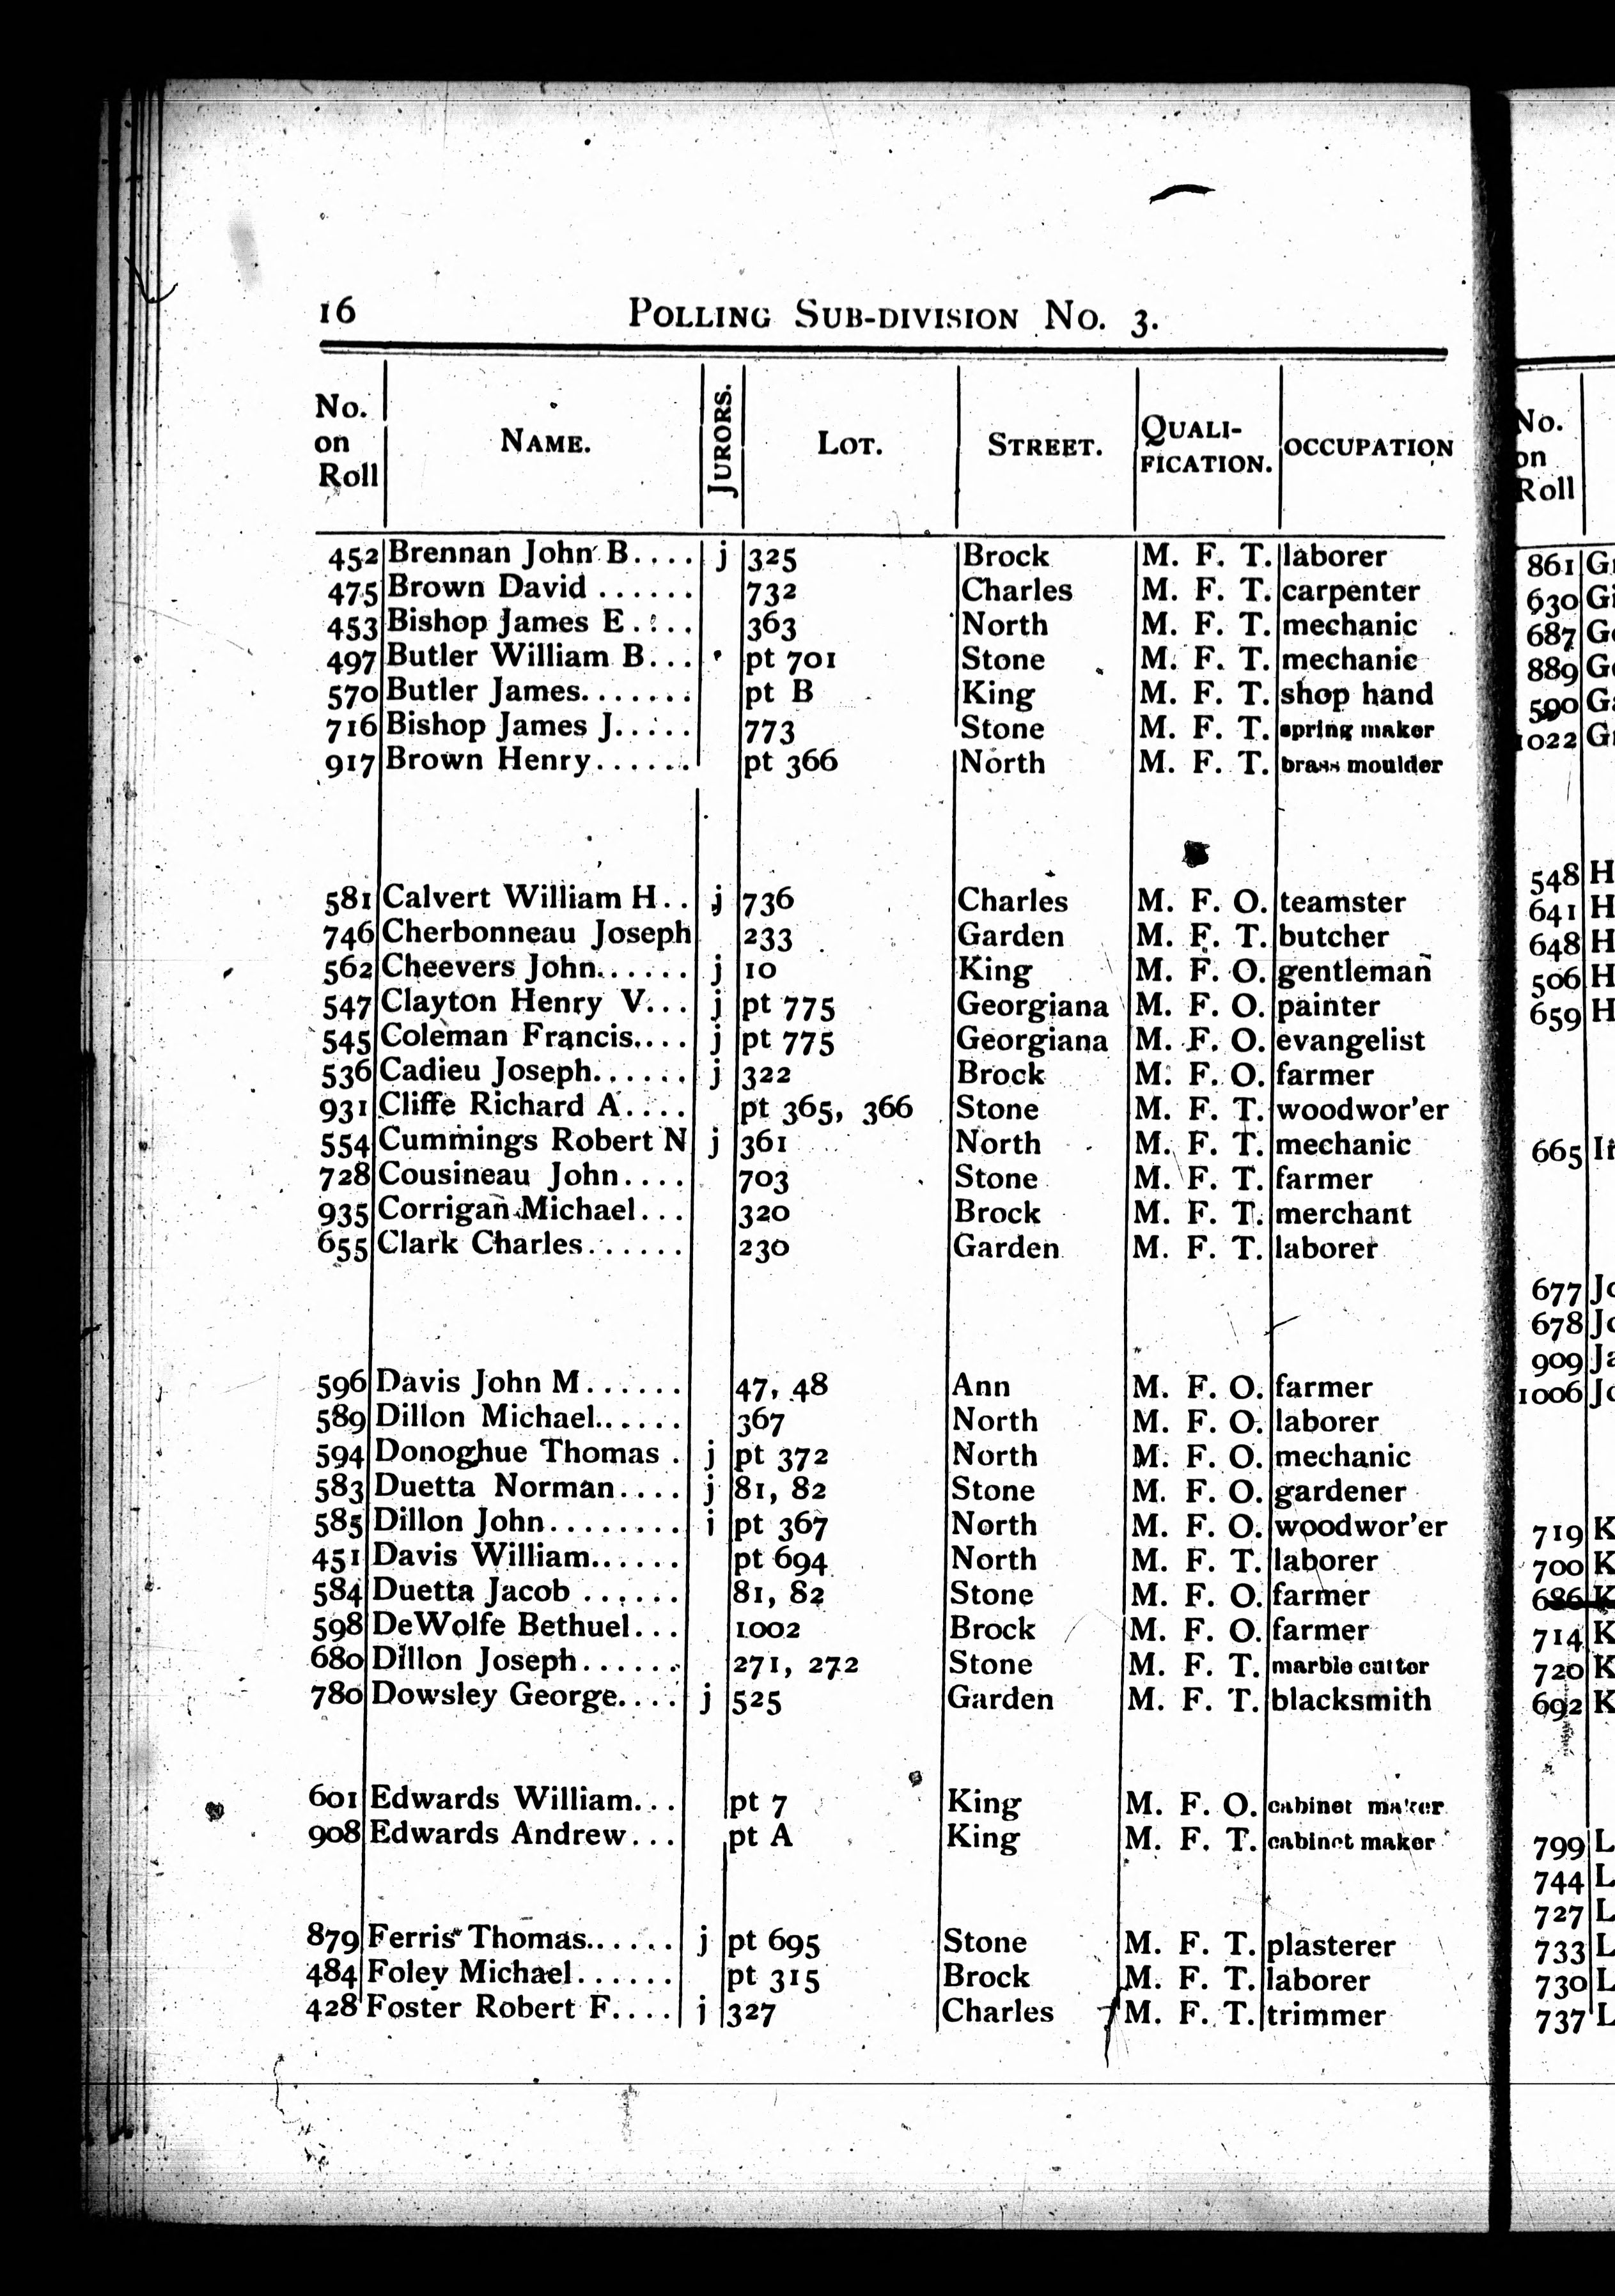 16 POLLING SUB-DIVISION No. 3.
No. on Roll NAME. JURORS. LOT. STREET. QUALI-FICATION. OCCUPATION
452 Brennan John B.... j 325 Brock M. F. T. laborer
475 Brown David ...... 732 Charles M. F. T. carpenter
453 Bishop James E.... 363 North M. F. T. mechanic
497 Butler William B... pt 701 Stone M. F. T. mechanic
570 Butler James....... pt B King M. F. T. shop hand
716 Bishop James J..... 773 Stone M. F. T. spring maker
917 Brown Henry...... pt 366 North M. F. T. brass moulder
581 Calvert William H.. j 736 Charles M. F. O. teamster
746 Cherbonneau Joseph 233 Garden M. F. T. butcher
562 Cheevers John...... j 10 King M. F. O. gentleman
547 Clayton Henry V... j pt 775 Georgiana M. F. O. painter
545 Coleman Francis.... j pt 775 Georgiana M. F. O. evangelist
536 Cadieu Joseph...... j 322 Brock M. F. O. farmer
931 Cliffe Richard A.... pt 365, 366 Stone M. F. T. woodwor'er
554 Cummings Robert N j 361 North M. F. T. mechanic
728 Cousineau John.... 703 Stone M. F. T. farmer
935 Corrigan Michael... 320 Brock M. F. T. merchant
655 Clark Charles...... 230 Garden M. F. T. laborer
596 Davis John M...... 47, 48 Ann M. F. O. farmer
589 Dillon Michael...... 367 North M. F. O. laborer
594 Donoghue Thomas . j pt 372 North M. F. O. mechanic
583 Duetta Norman.... j 81, 82 Stone M. F. O. gardener
585 Dillon John........ j pt 367 North M. F. O. woodwor'er
451 Davis William...... pt 694 North M. F. T. laborer
584 Duetta Jacob ...... 81, 82 Stone M. F. O. farmer
598 DeWolfe Bethuel... 1002 Brock M. F. O. farmer
680 Dillon Joseph...... 271, 272 Stone M. F. T. marble cutter
780 Dowsley George.... j 525 Garden M. F. T. blacksmith
601 Edwards William... pt 7 King M. F. O. cabinet maker
908 Edwards Andrew... pt A King M. F. T. cabinet maker
879 Ferris Thomas...... j pt 695 Stone M. F. T. plasterer
484 Foley Michael...... pt 315 Brock M. F. T. laborer
428 Foster Robert F.... j 327 Charles M. F. T. trimmer
No. on Roll
861
630
687
889
590
1022
548 H
641 H
648 H
506 H
659 H
665
677
678
909
1006
719 K
700 K
686 K
714 K
720 K
692 K
799 L
744 L
727 L
733 L
730 L
737 L